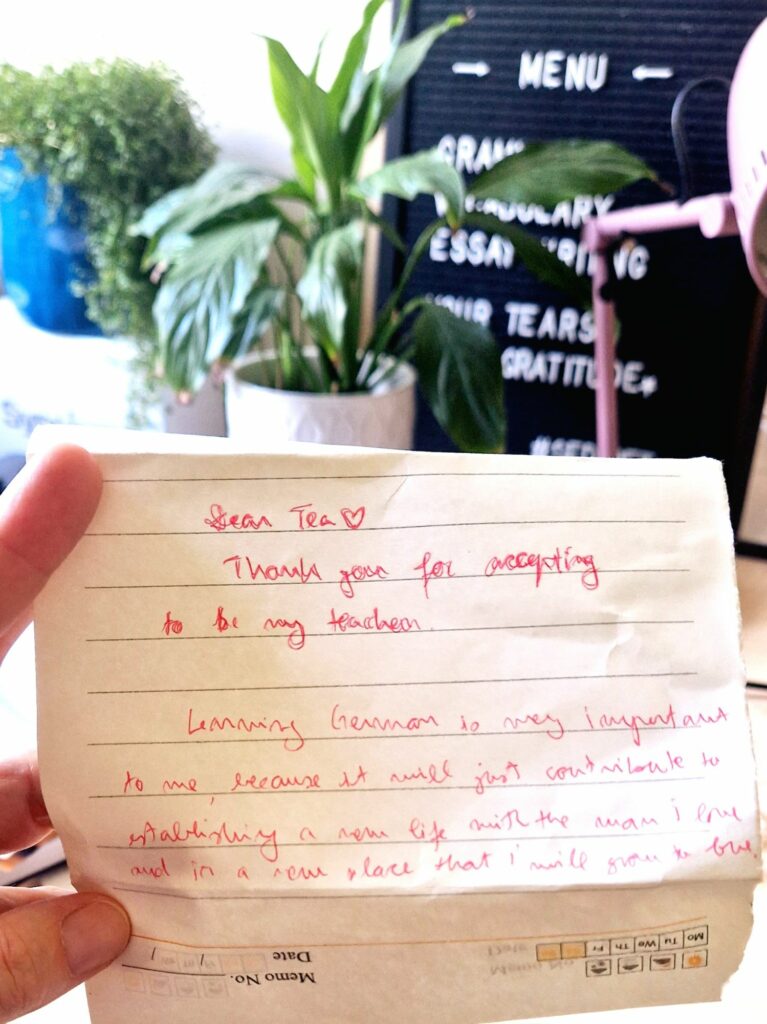 → MENU ←
GRAM
VOCABULARY
ESSAY WRITING
YOUR TEARS
GRATITUDE*
Dear Tea ♡
Thank you for accepting
to be my teacher.
Learning German is very important
to me, because it will just contribute to
establishing a new life with the man i love
and in a new place that i will grow to love.
Mo Tu We Th Fr
Memo No.
Date / /